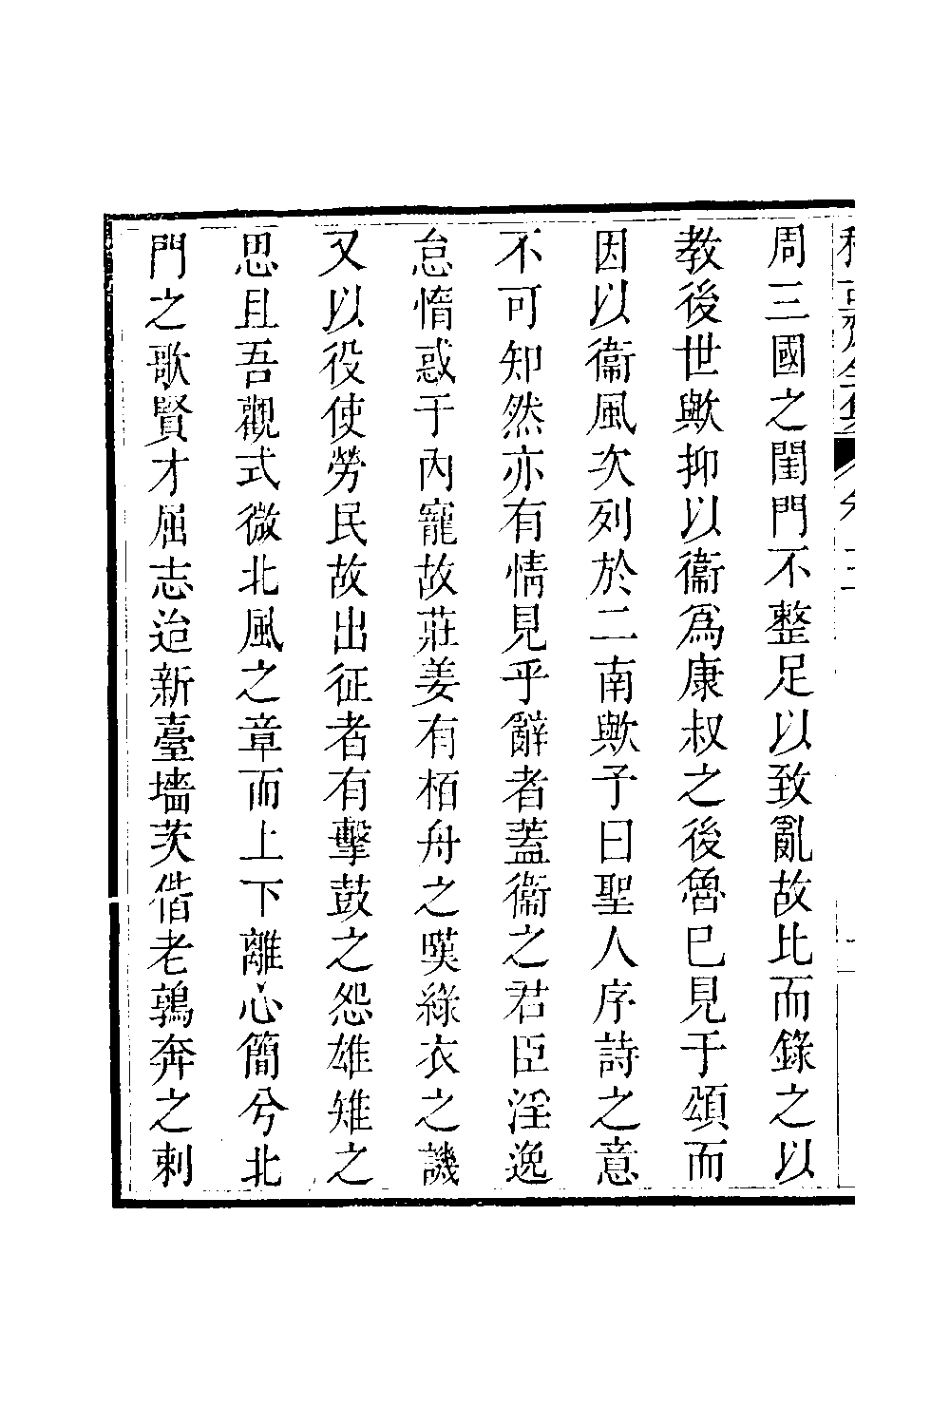 周三國之閨門不整足以致亂故比而錄之以
教後世歟抑以衞爲康叔之後魯已見于頌而
因以衞風次列於二南歟予曰聖人序詩之意
不可知然亦有情見乎辭者蓋衞之君臣淫逸
怠惰惑于內寵故莊姜有栢舟之嘆綠衣之譏
又以役使勞民故出征者有擊鼓之怨雄雉之
思且吾觀式微北風之章而上下離心簡兮北
門之歌賢才屈志迨新臺墻茨偕老鶉奔之刺